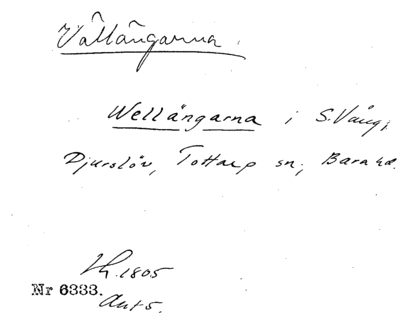 Vällängarna.
Wellängarna i S. Vång,
Djurslöv, Tottarp sn, Bara hd.
Lh. 1805
Nr 6333.
Akt 5.